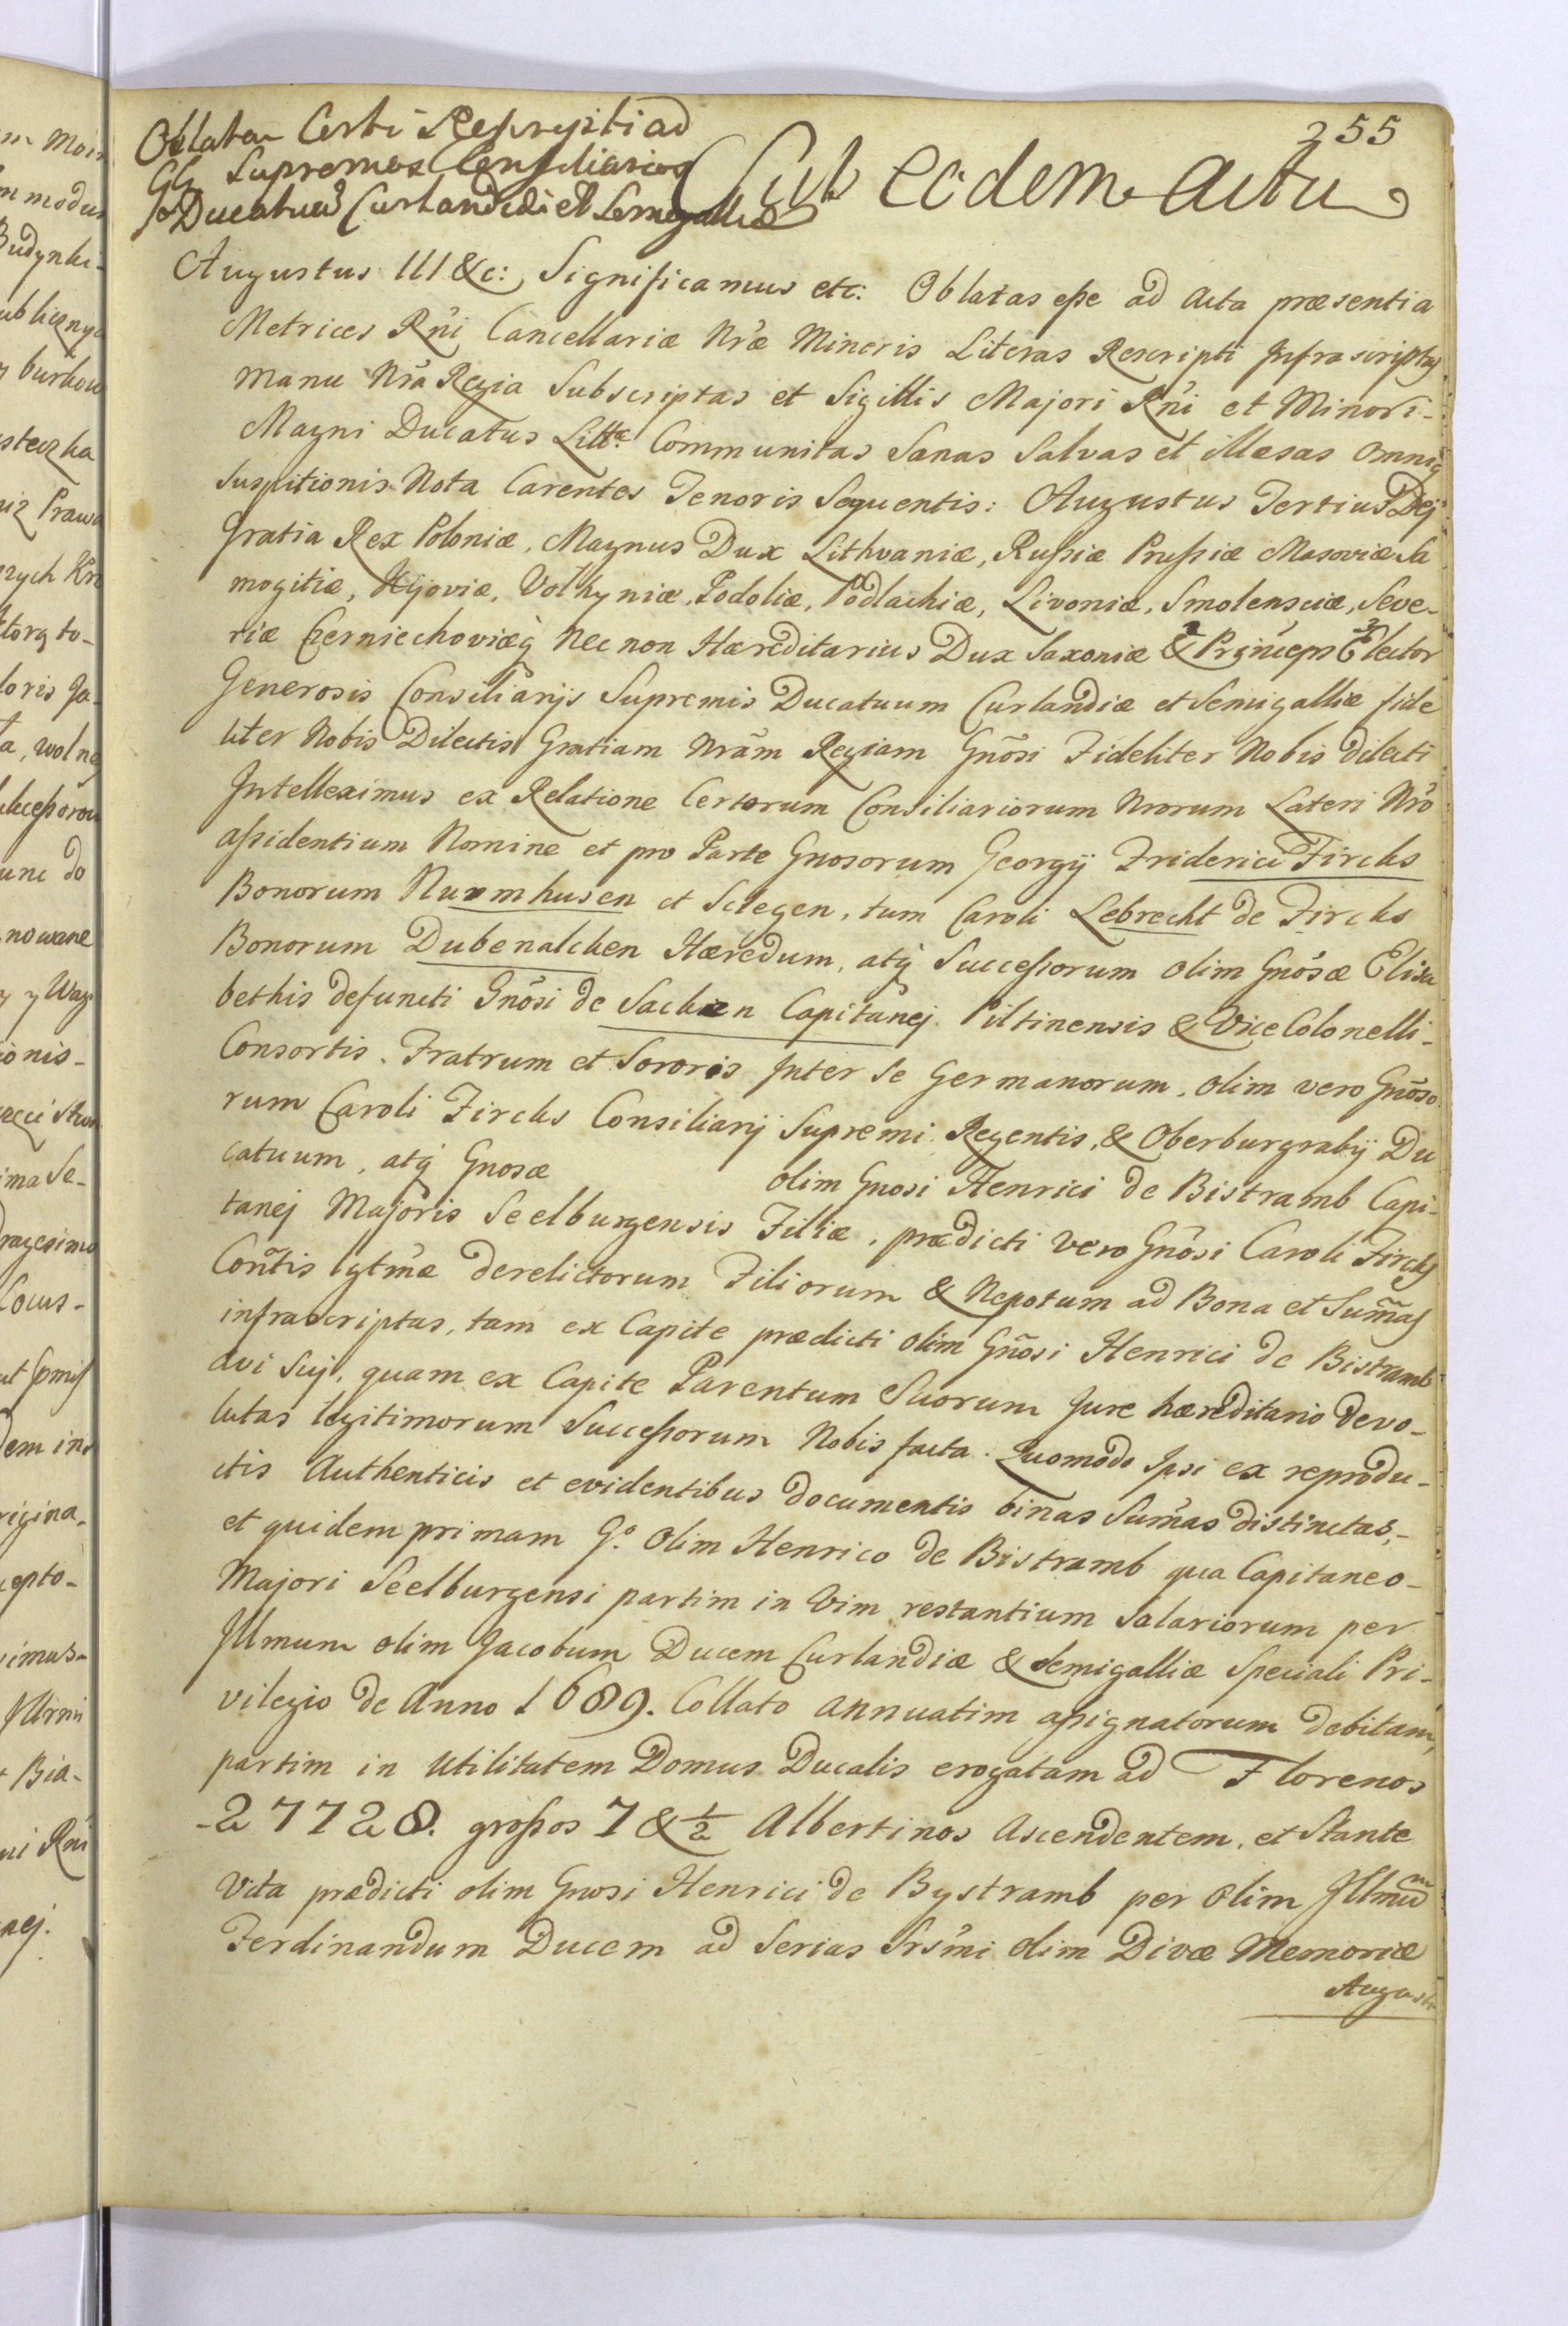 255
Oblata Certi Rescripti ad
GG Supremos Consiliarios
Ducatuū Curlandiæ et Semigalliæ
Sub eodem actu
Augustus III &c: Significamus etc: Oblatas esse ad Acta præsentia
Metrices Rñi Cancellariæ Nræ Minoris Literas Rescripti Infrascriptas
manu Nra Regia Subscriptas et Sigillis Majori Rñi et Minori-
Magni Ducatus Litt. Communitas Sanas Salvas et illæsas omniq
Suspitionis Nota Carentes Tenoris Sequentis: Augustus Tertius Dej
Gratia Rex Poloniæ, Magnus Dux Lithvaniæ, Russiæ Prussiæ Masoviæ Sa
mogitiæ, Kijoviæ, Volhyniæ, Podoliæ, Podlachiæ, Livoniæ, Smolensciæ, Seve-
riæ Czerniechoviæq Nec non Hæreditarius Dux Saxoniæ & Princeps Elector
Generosis Consiliarijs Supremis Ducatuum Curlandiæ et Semigalliæ fide
liter Nobis Dilectis Gratiam Nrãm Regiam Gnõsi Fideliter Nobis dilecti
Intelleximus ex Relatione Certorum Consiliariorum Nrorum Lateri Nro
assidentium Nomine et pro Parte Gnosorum Georgij Friderici Fircks
Bonorum Nurmhusen et Scregen, tum Caroli Lebrecht de Fircks
Bonorum Dubenalcken Hæredum, atq Successorum olim Gnosæ Elisa
bethis defuncti Gnosi de Sacken Capitanej Piltinensis & Vice Colonelli-
Consortis. Fratrum et Sororis Inter Se Germanorum, olim vero Gnõso
rum Caroli Fircks Consiliarij Supremi Regentis, & Oberburgrabij Du
catuum, atq Gnosæ olim Gnosi Henrici de Bistramb Capi-
tanej Majoris Seelburgensis Filiæ, prædicti vero Gnosi Caroli Fircks
Coñtis lgtmæ derelictorum Filiorum & Nepotum ad Bona et Sumas
infrascriptas, tam ex Capite prædicti olim Gnõsi Henrici de Bistramb
avi Suj, quam ex Capite Parentum Suorum Jure hæreditario devo-
lutas legitimorum Successorum Nobis facta. Quomodo Ipsi ex reprodu-
ctis Authenticis et evidentibus documentis binas Sumas distinctas,-
et quidem primam G.º Olim Henrico de Bistramb qua Capitaneo-
Majori Seelburgensi partim in Vim restantium Salariorum per
Illmum olim Jacobum Ducem Curlandiæ & Semigalliæ Speciali Pri-
vilegio de Anno 1689. Collato annuatim assignatorum debitam,
partim in Utilitatem Domus Ducalis erogatam ad Florenos
-27728. grossos 7 & ½ Albertinos Ascendentem, et Stante
Vita prædicti olim Gnosi Henrici de Bystramb per olim Illmũm
Ferdinandum Ducem ad Serias Srsmi olim Divæ Memoriæ
Augusti